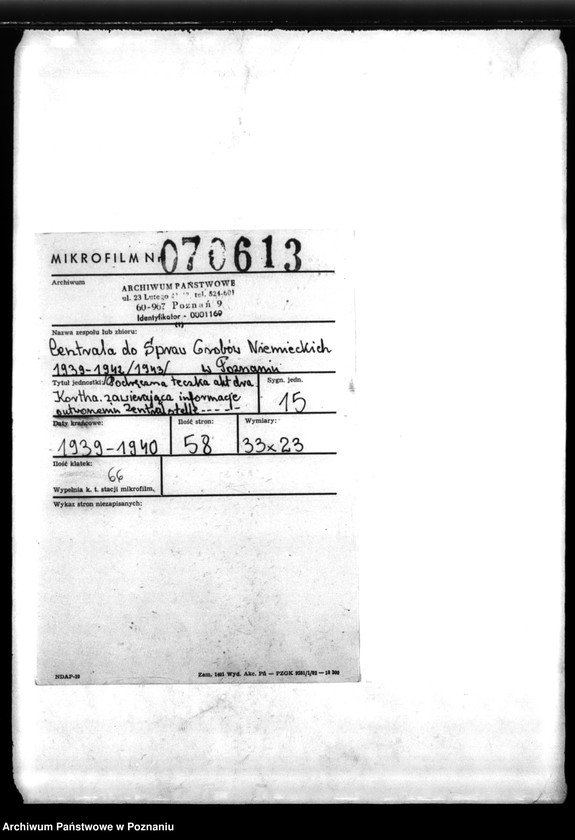 MIKROFILM Nr 070613
Archiwum
ARCHIWUM PAŃSTWOWE
ul. 23 Lutego tel. 524-601
60-967 Poznań 9
Identyfikator - 0001160
(1)
Nazwa zespołu lub zbioru:
Centrala do Spraw Grobów Niemieckich
1939-1942/1943/ w Poznaniu
Tytuł jednostki: Podręczna teczka akt dra
Kortha. zawierająca informacje
o utworzeniu Zentralstelle
Sygn. jedn.
15
Daty krańcowe:
1939-1940
Ilość stron:
58
Wymiary:
33x23
Ilość klatek:
66
Wypełnia k. t. stacji mikrofilm.
Wykaz stron niezapisanych:
NDAP-19
Zam. Wyd. Akc. Pń — PZGK
Archiwum Państwowe w Poznaniu